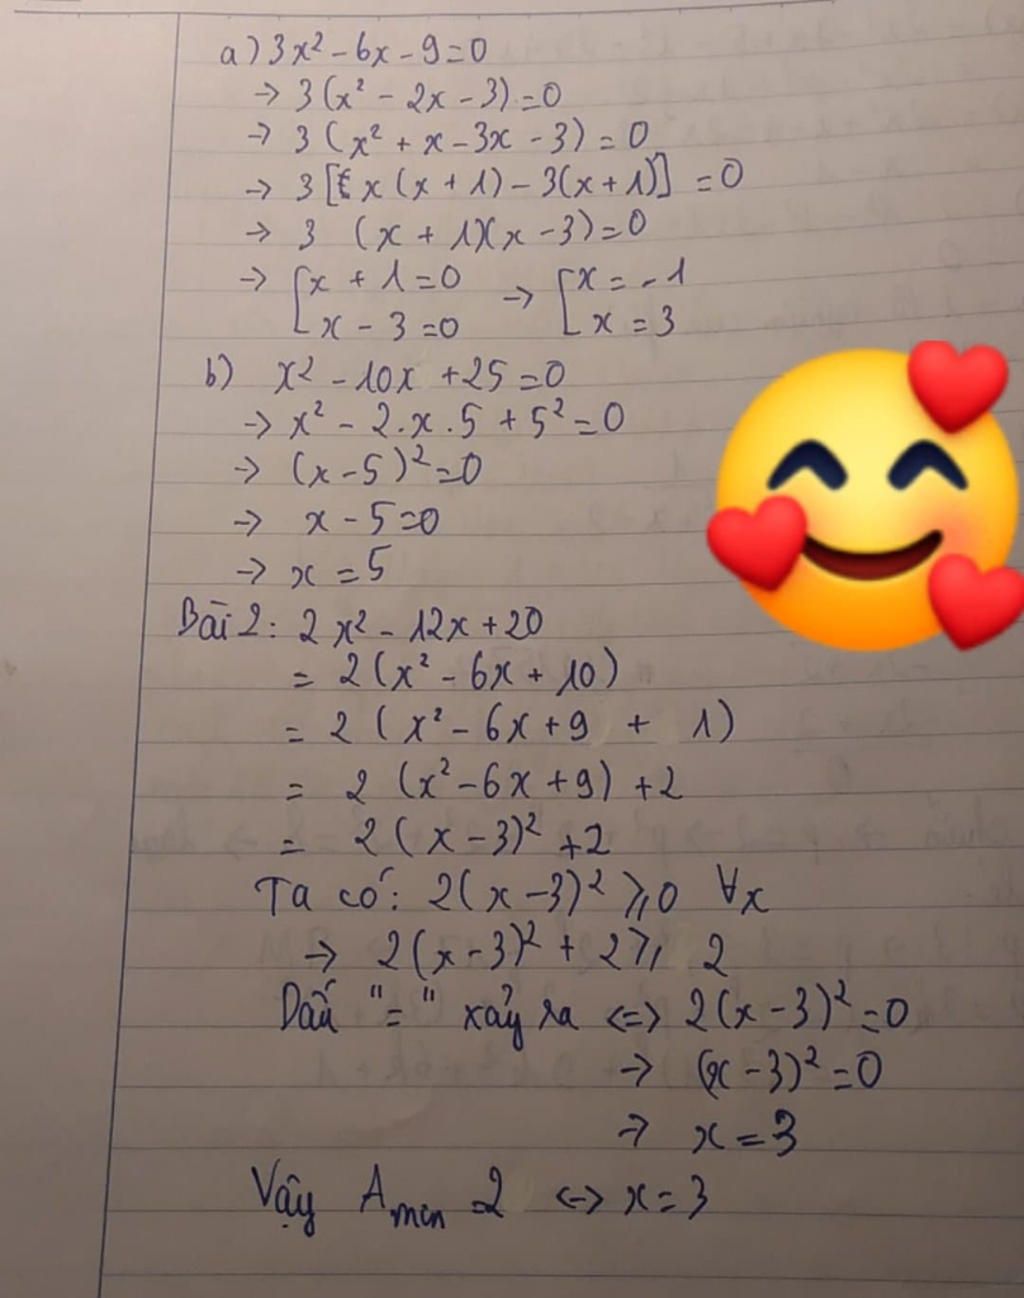 a) 3x² - 6x - 9 = 0
→ 3(x² - 2x - 3) = 0
→ 3(x² + x - 3x - 3) = 0
→ 3[x(x + 1) - 3(x + 1)] = 0
→ 3 (x + 1)(x - 3) = 0
→ [x + 1 = 0 → [x = -1
x - 3 = 0 x = 3
b) x² - 10x + 25 = 0
→ x² - 2.x.5 + 5² = 0
→ (x - 5)² = 0
→ x - 5 = 0
→ x = 5
Bài 2: 2x² - 12x + 20
= 2(x² - 6x + 10)
= 2(x² - 6x + 9 + 1)
= 2(x² - 6x + 9) + 2
= 2(x - 3)² + 2
Ta có: 2(x - 3)² ⩾ 0 ∀x
→ 2(x - 3)² + 2 ⩾ 2
Dấu "=" xảy ra <=> 2(x - 3)² = 0
→ (x - 3)² = 0
→ x = 3
Vậy Amin = 2 <-> x = 3